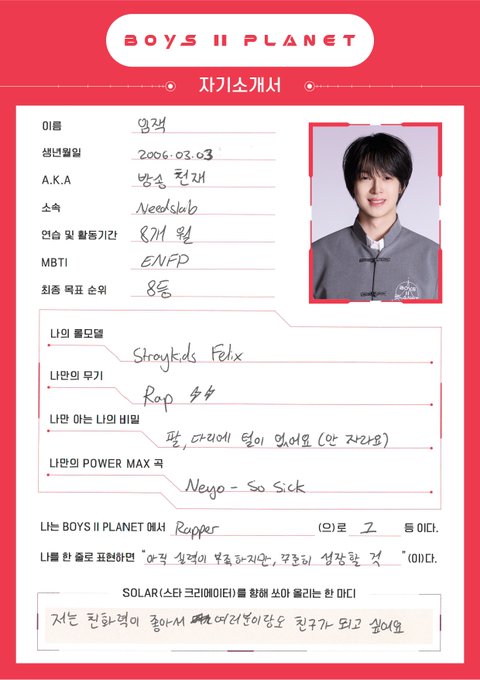 BOYS II PLANET
자기소개서
이름 임잭
생년월일 2006.03.03
A.K.A 방송 천재
소속 Needslab
연습 및 활동기간 8개월
MBTI ENFP
최종 목표 순위 8등
BOYS II PLANET
나의 롤모델
Straykids Felix
나만의 무기
Rap ϟϟ
나만 아는 나의 비밀
팔, 다리에 털이 없어요 (안 자라요)
나만의 POWER MAX 곡
Neyo - So Sick
나는 BOYS II PLANET 에서 Rapper (으)로 1 등 이다.
나를 한 줄로 표현하면 "아직 실력이 부족하지만, 꾸준히 성장할 것" (이)다.
SOLAR(스타 크리에이터)를 향해 쏘아 올리는 한 마디
저는 친화력이 좋아서 여러분이랑도 친구가 되고 싶어요